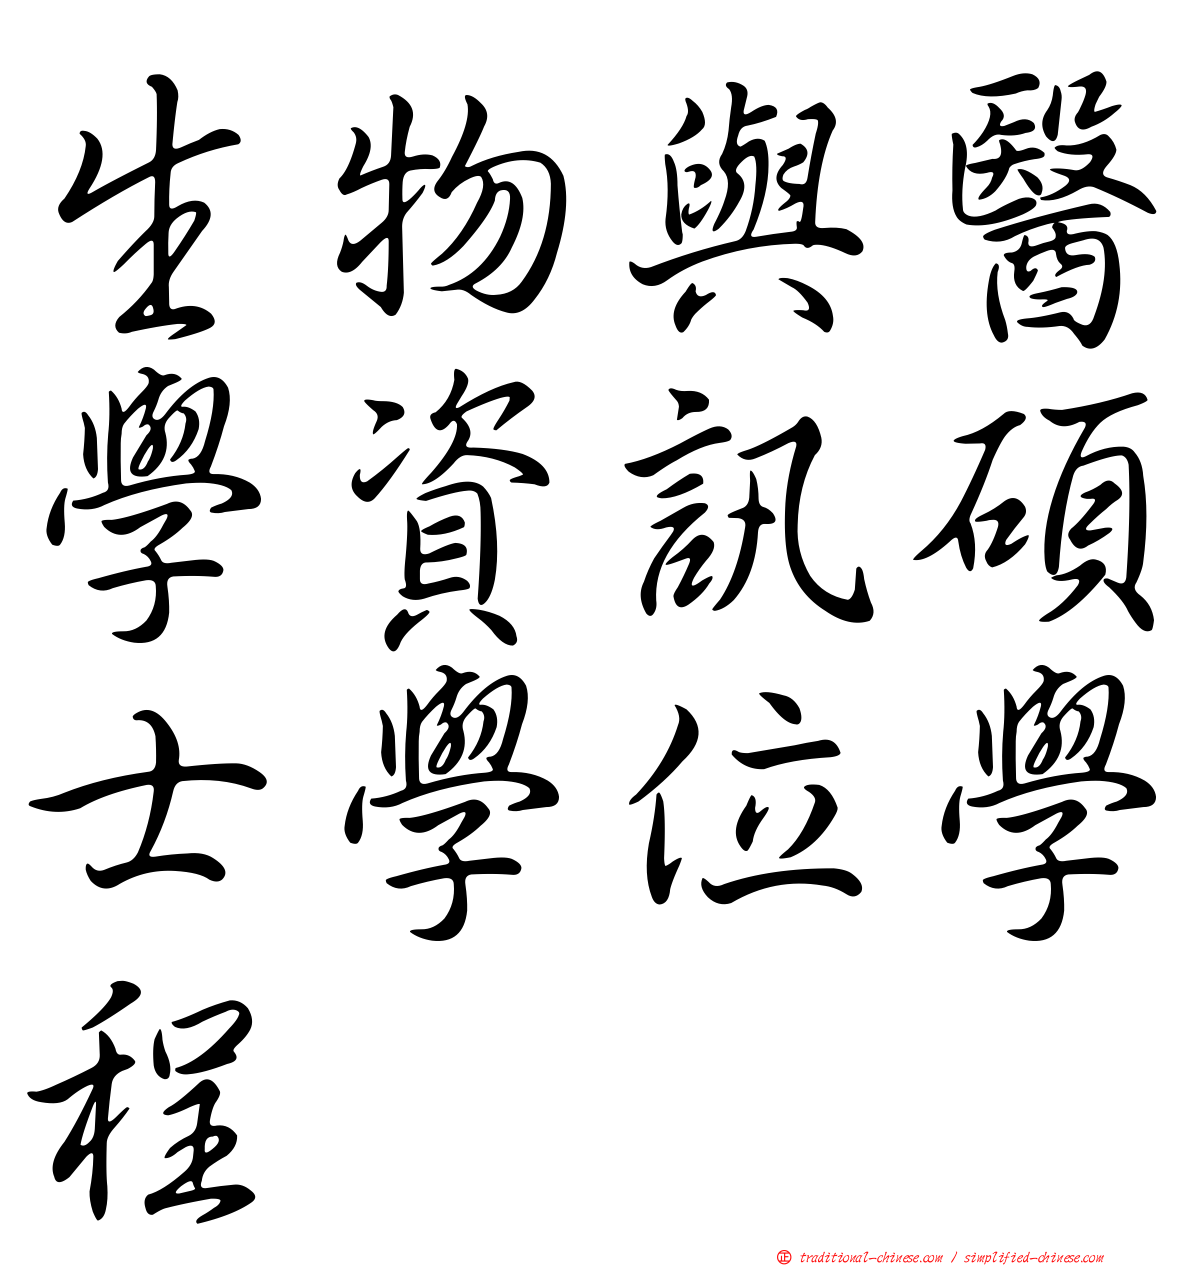 生物與醫
學資訊碩
士學位學
程
正 traditional-chinese.com / simplified-chinese.com